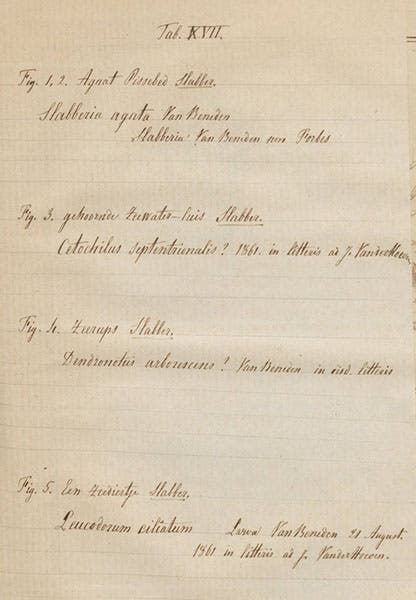 Tab. XVII.
Fig. 1, 2. Agaat Pissebed Slabber.
Slabberia agata Van Beneden
Slabberia Van Beneden non Forbes
Fig. 3. gehoornde Zeewater-luis Slabber.
Cetochilus septentrionalis? 1861. in litteris ad J. Van der Hoeven
Fig. 4. Zeerups Slabber.
Dendronotus arborescens? Van Beneden in iisd. litteris
Fig. 5. Een Zeediertje Slabber.
Leucodorum ciliatum Larva Van Beneden 21 August.
1861 in litteris ad J. Van der Hoeven.